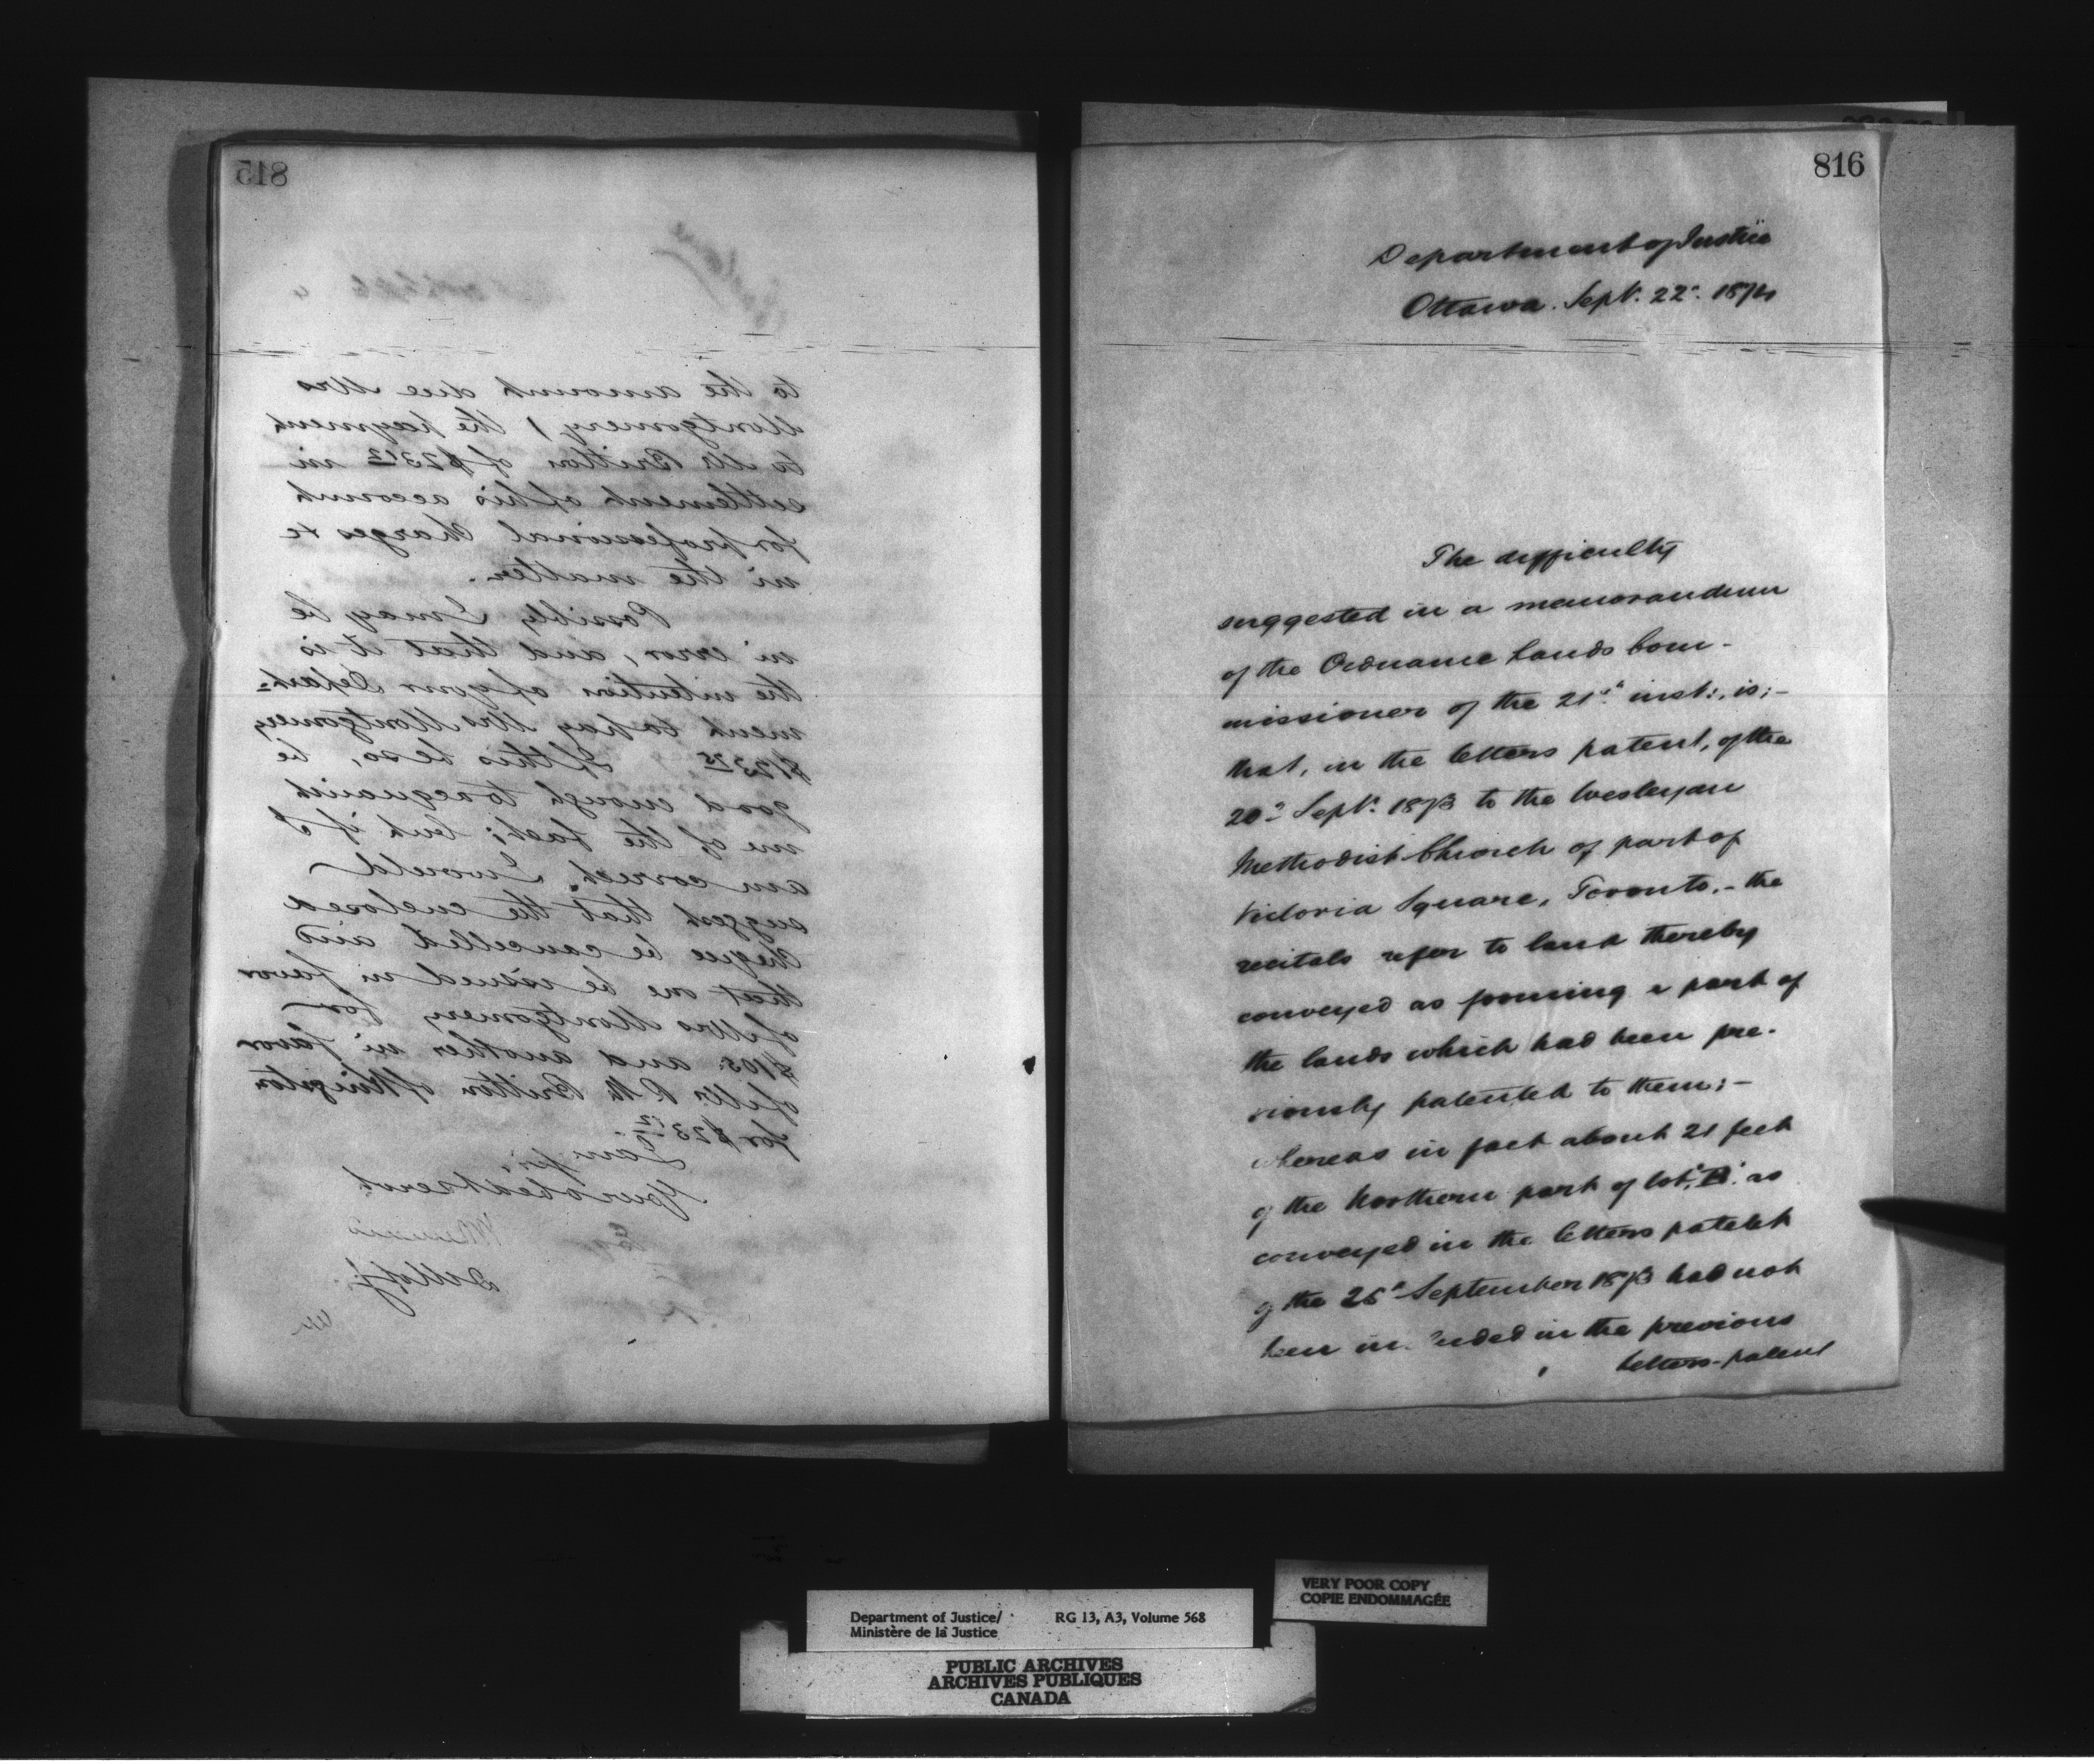 815
to the amount due Mrs
Montgomery, & the payment
to Mr Britton of $23 12 in
settlement of his account
for professional Charges &c
in the matter.
Possibly I may be
in error, and that it is
the intention of your Depart-
ment to pay Mrs Montgomery
If this be so, be
good enough to acquaint
me of the fact; but if I
am correct I would
suggest that the enclosed
cheque be cancelled and
that one be issued in favor
of Mrs Montgomery for
$105. and another in favor
of Mr Britton of Kingston
for $23 12
I am Sir,
Your obedt servt
816
Department of Justice
Ottawa. Sept. 22d. 1874
The difficulty
suggested in a memorandum
of the Ordnance Lands Com-
missioner of the 21st inst:, is;-
that, in the letters patent, of the
Sept. 1873 to the Wesleyan
Methodist Church of part of
Victoria Square, Toronto,- the
recitals refer to land thereby
conveyed as forming a part of
the lands which had been pre-
viously patented to them;-
whereas in fact about 21 feet
of the Northern part of lot "B" as
conveyed in the letters patent
of the September 1873 had not
been in the previous
letters-patent
Department of Justice/
Ministère de la Justice
RG 13, A3, Volume 568
VERY POOR COPY
COPIE ENDOMMAGÉE
PUBLIC ARCHIVES
ARCHIVES PUBLIQUES
CANADA